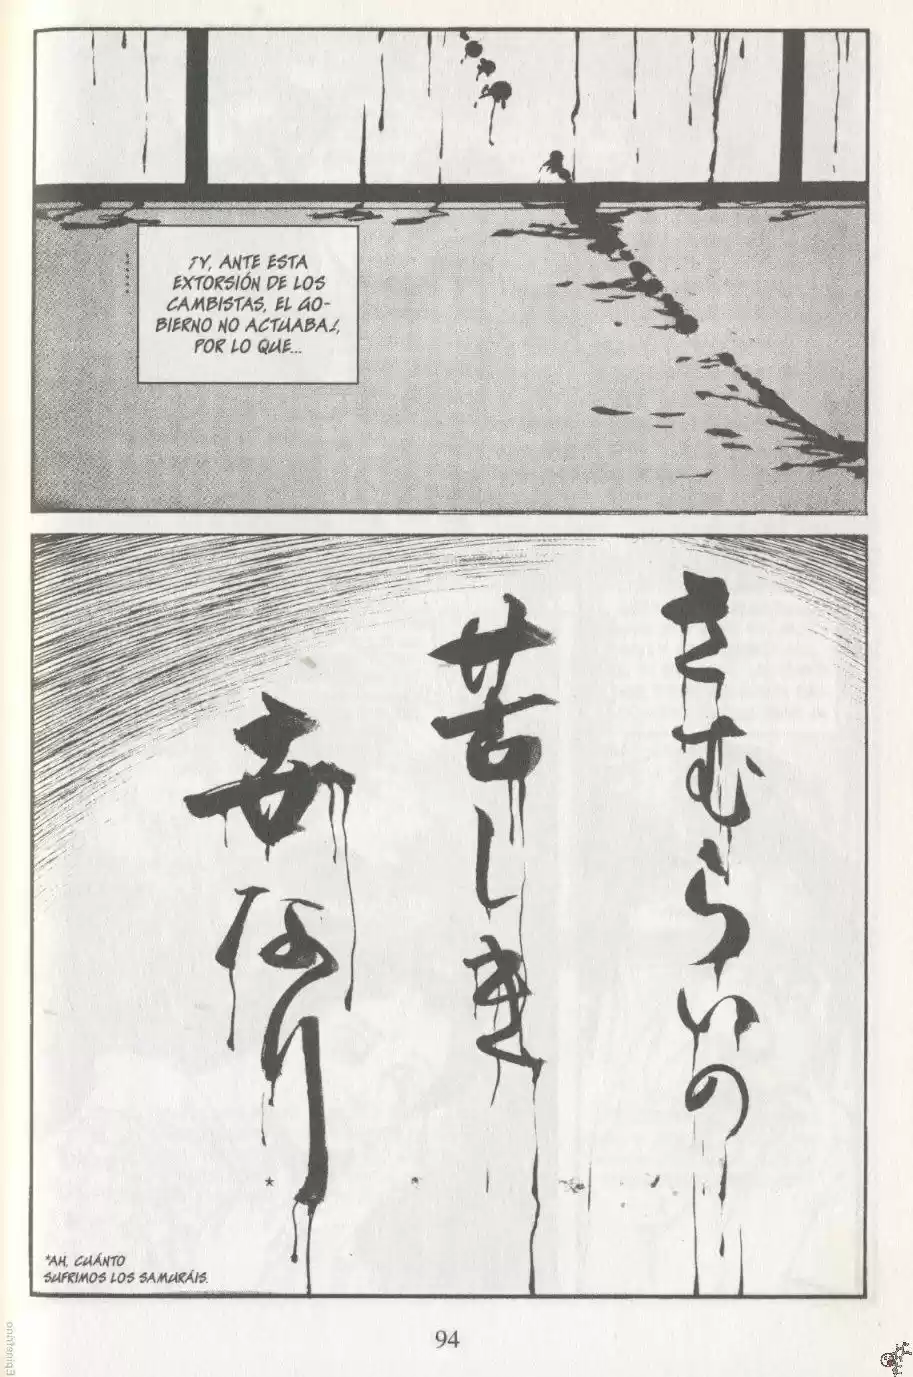 ¡Y, ANTE ESTA
EXTORSIÓN DE LOS
CAMBISTAS, EL GO-
BIERNO NO ACTUABA!,
POR LO QUE...
さむらいの
苦しき
なり
*
*AH, CUÁNTO
SUFRIMOS LOS SAMURÁIS.
94